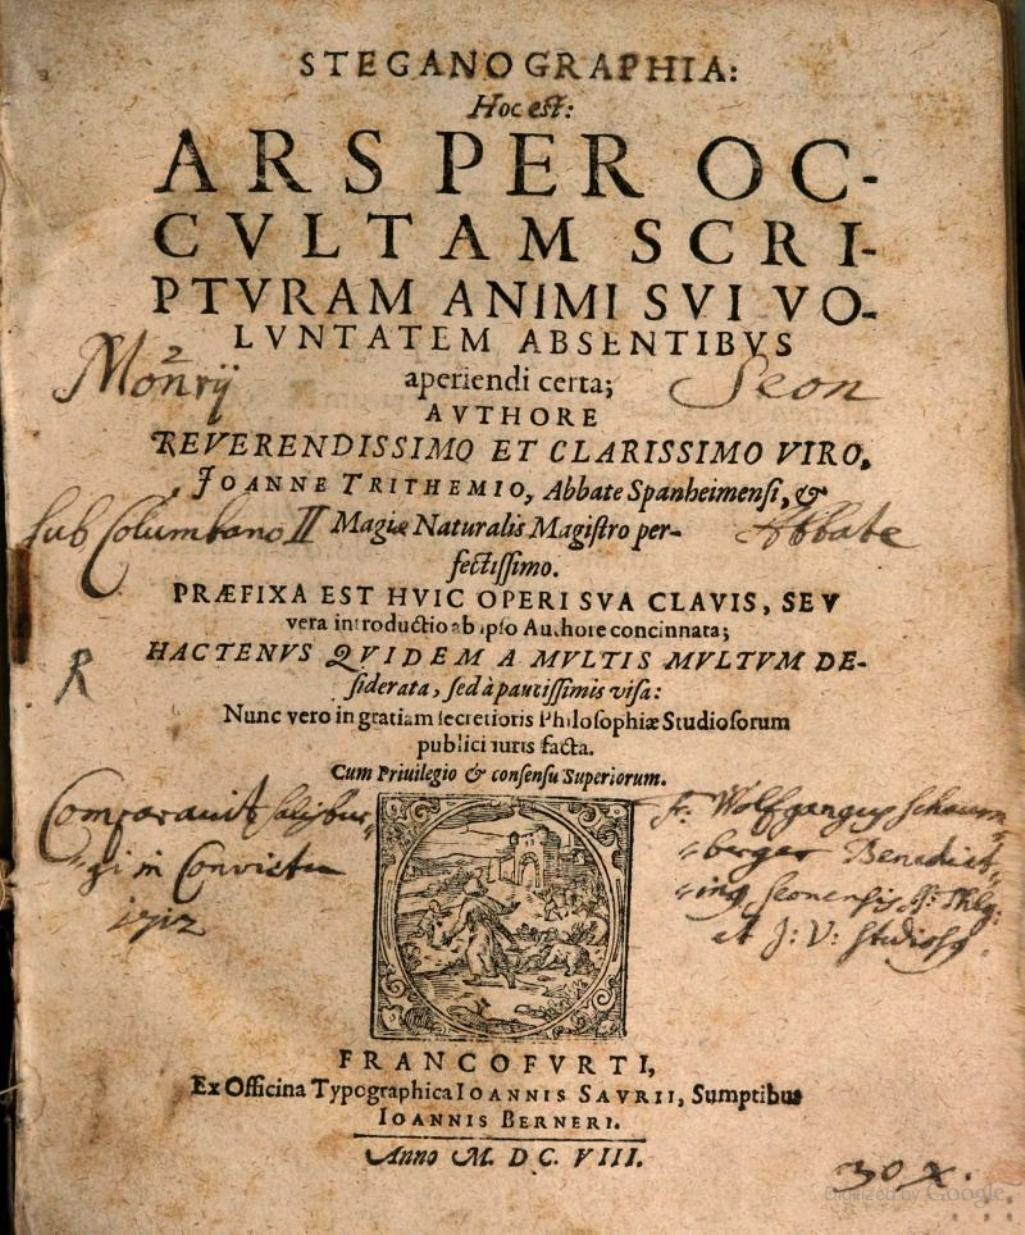 STEGANOGRAPHIA:
Hoc est:
ARS PER OC-
CVLTAM SCRI-
PTVRAM ANIMI SVI VO-
LVNTATEM ABSENTIBVS
aperiendi certa;
Seon
AVTHORE
REVERENDISSIMO ET CLARISSIMO VIRO,
IOANNE TRITHEMIO, Abbate Spanheimensi, &
sub Columbano II
Magiæ Naturalis Magistro per-
Abbate
fectissimo.
PRÆFIXA EST HVIC OPERI SVA CLAVIS, SEV
vera introductio ab ipso Authore concinnata;
HACTENVS QVIDEM A MVLTIS MVLTVM DE-
siderata, sed à paucissimis visa:
R
Nunc vero in gratiam secretioris Philosophiæ Studiosorum
publici iuris facta.
Cum Priuilegio & consensu Superiorum.
Comparauit Salisbur-
gi in Convictu
1712
F. Wolfgangus Schaum-
berger Benedict-
et J: V: studiosus
FRANCOFVRTI,
Ex Officina Typographica IOANNIS SAVRII, Sumptibus
IOANNIS BERNERI.
Anno M. DC. VIII.
30 x.
Digitized by Google